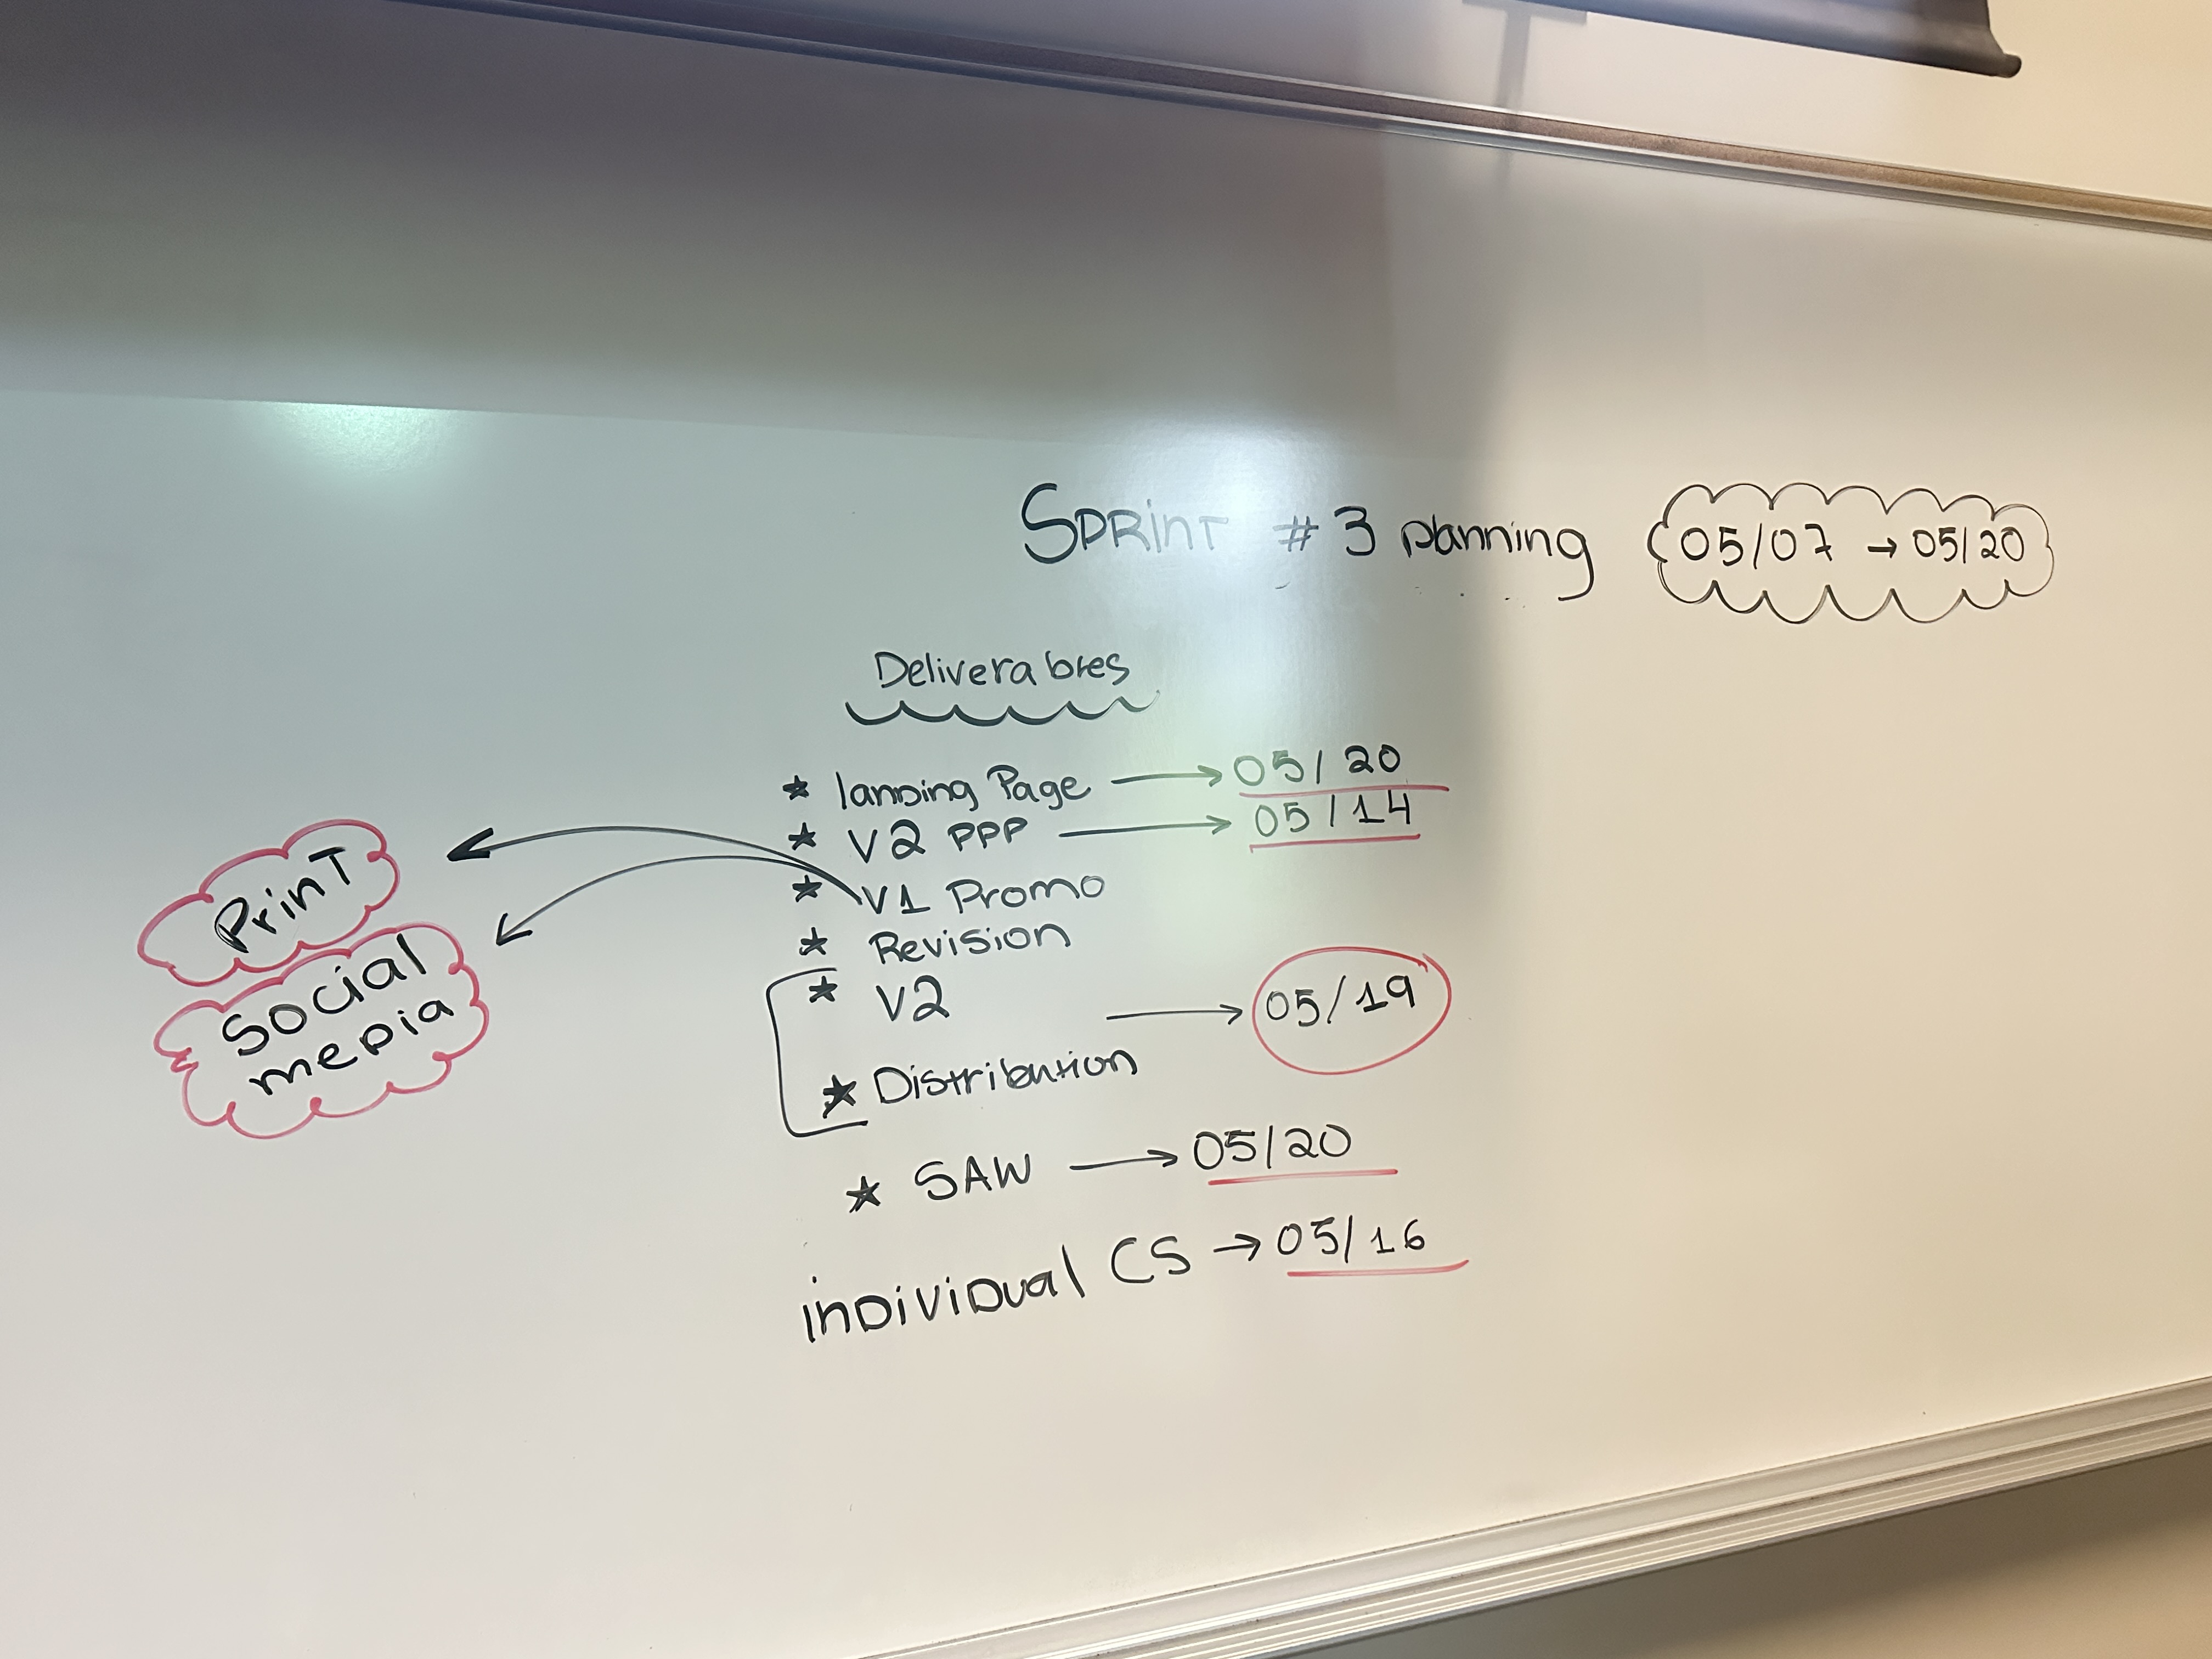 Sprint #3 planning 05/07 → 05/20
Deliverables
★ landing Page → 05/20
★ V2 PPP → 05/14
★ V1 Promo
Print
Social
media
★ Revision
★ V2
→ 05/19
★ Distribution
★ SAW → 05/20
individual CS → 05/16